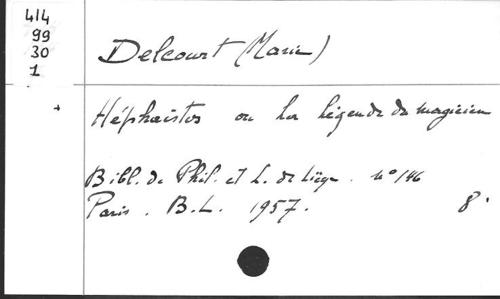 414
99
30
1
+
Delcourt (Marie)
Héphaistos ou la légende du magicien
Bibl. de Phil. et L. de Liège. n° 146
Paris. B.L. 1957. 8°